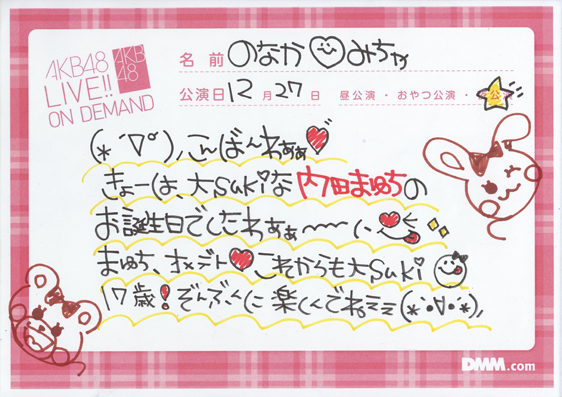 AKB48
LIVE!!
ON DEMAND
AKB
48
名前 のなか♡みちゃ
公演日 12月27日 昼公演・おやつ公演・
(*´∇`)ノこんばんわぁぁ♥
きょーは、大sukiな内田まゆちの
お誕生日でしたわぁぁ〜〜〜
まゆち、オメデト♥これからも大suki
17歳!ぞんぶんに楽しんでねミミ(*´・∀・`*)ノ
DMM.com